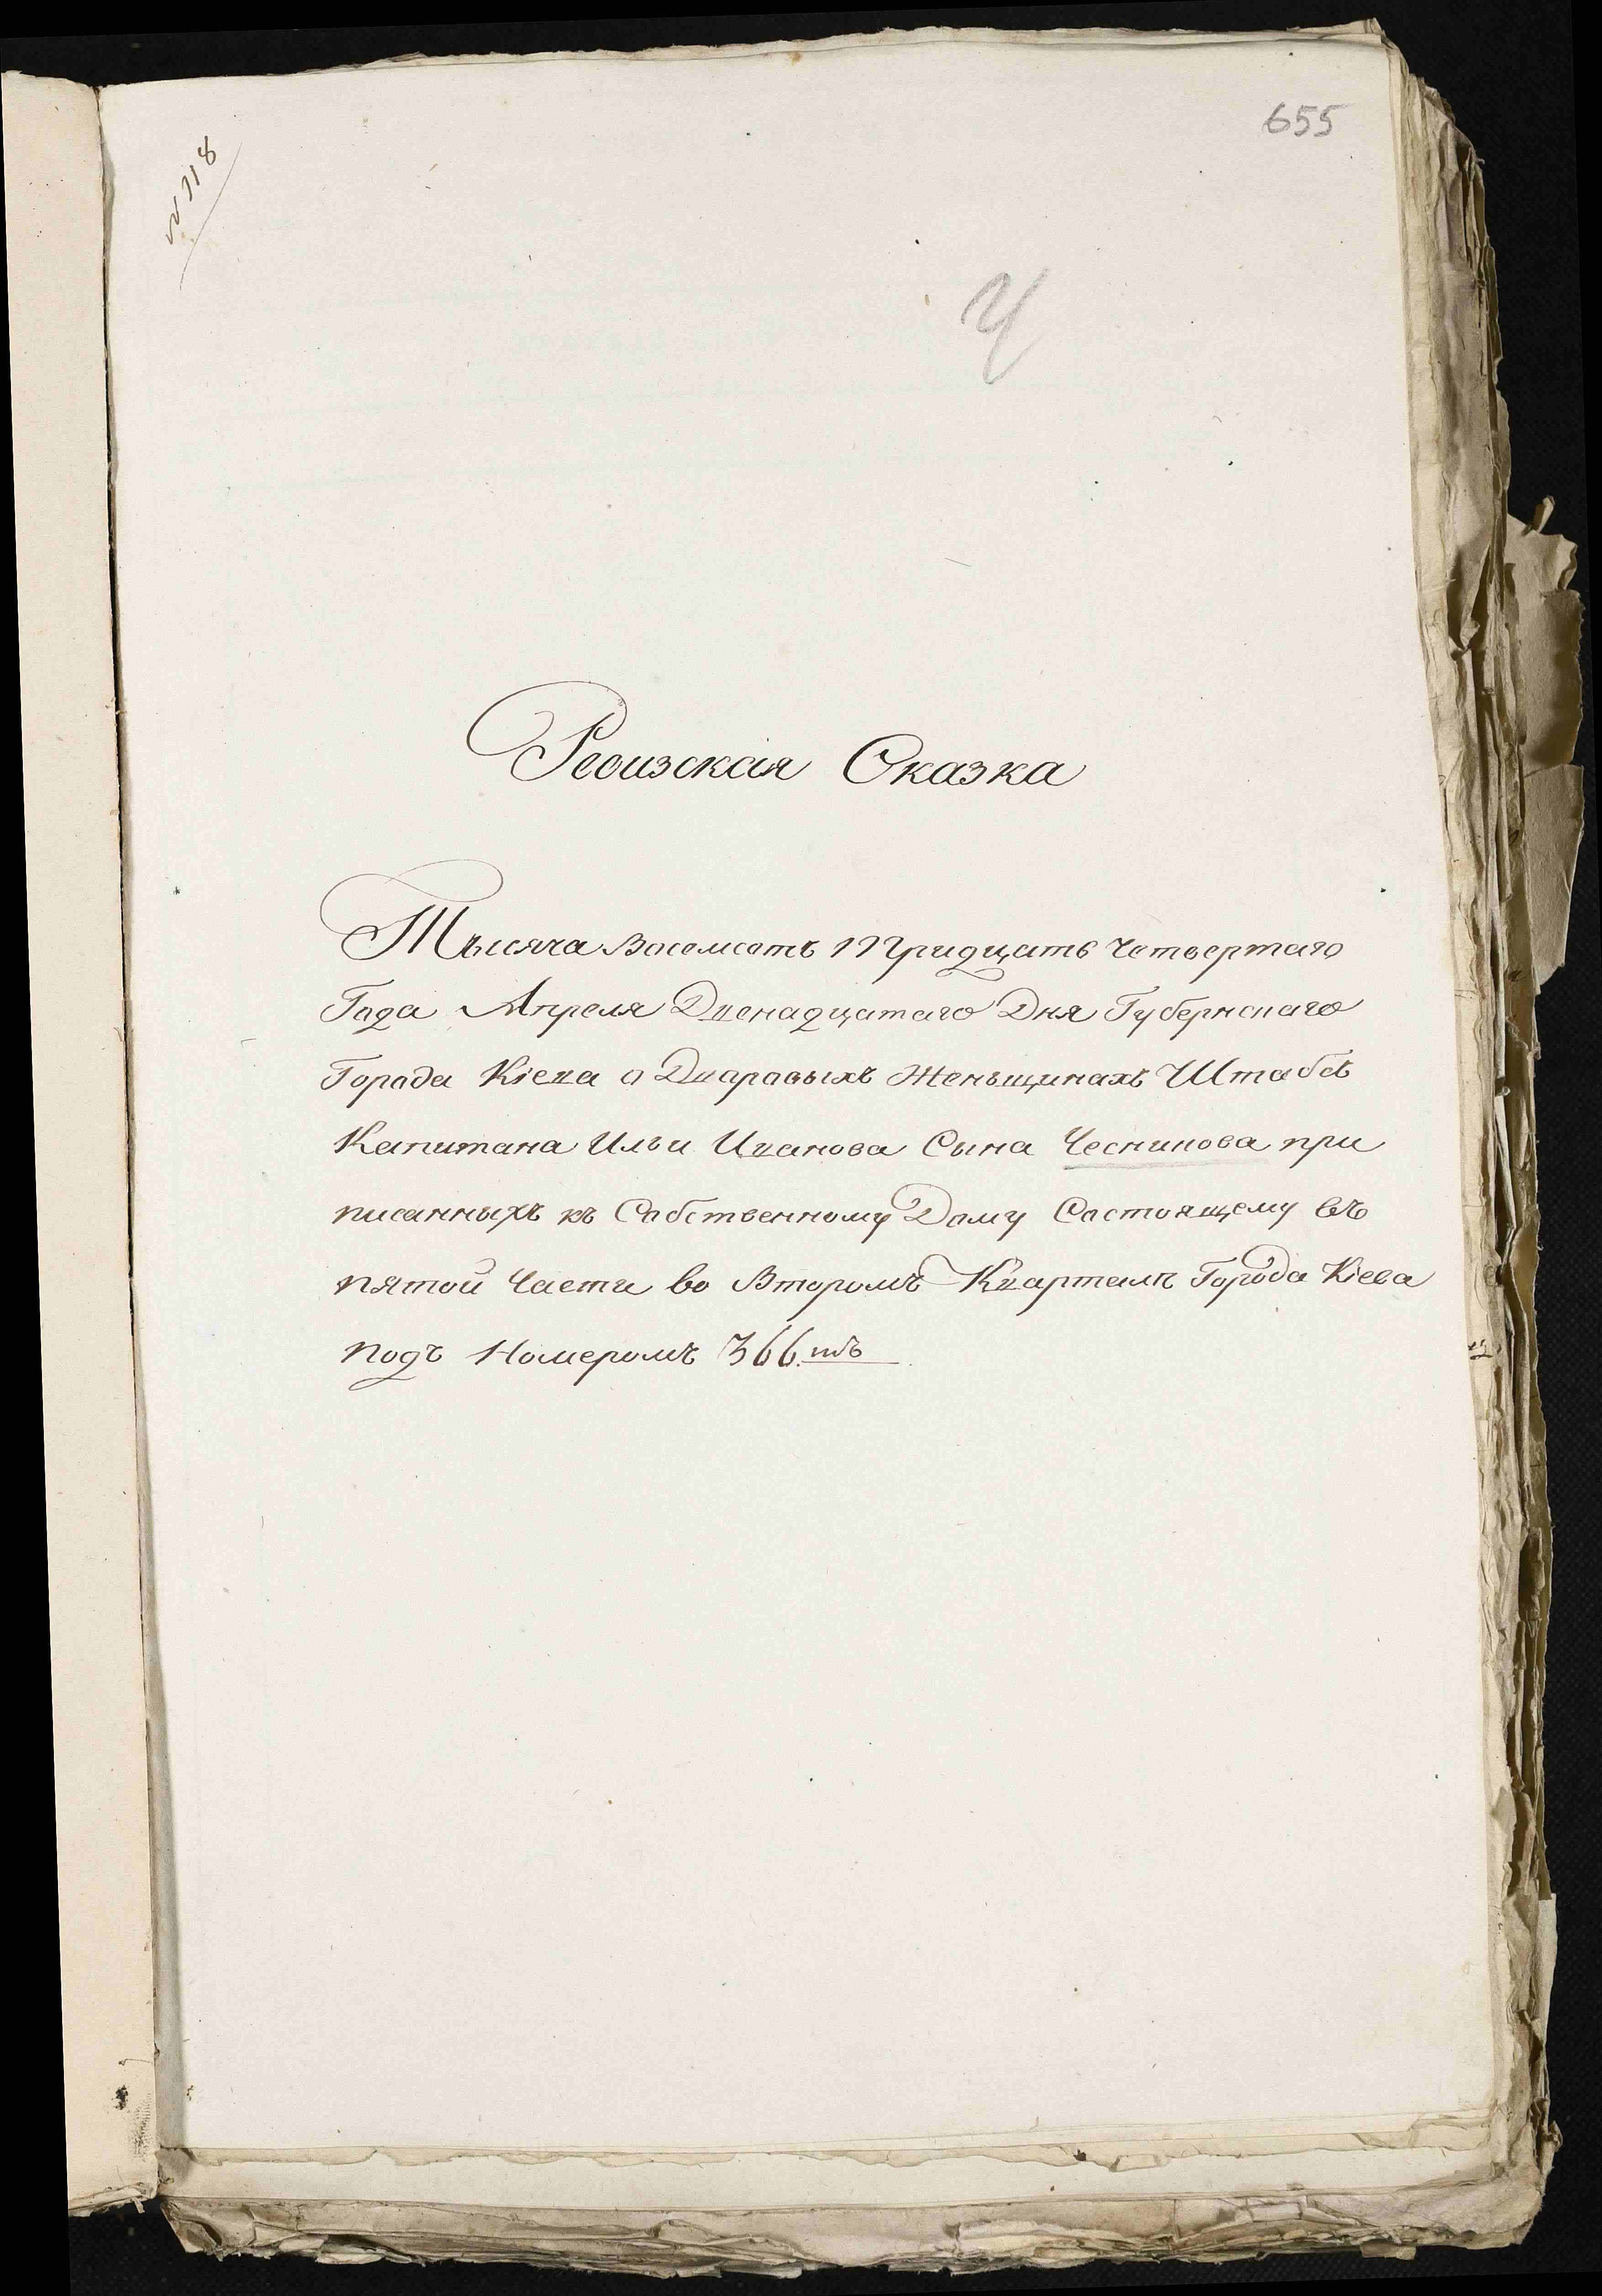 655
№ 118
Ч
Ревизская Сказка
Тысяча Восемсотъ Тридцать Четвертаго
Года Апреля Двенадцатаго Дня Губернскаго
Горада Кіева о Дваровыхъ Женьщинахъ Штабсъ
Капитана Ильи Иванова Сына Чеснинова при
писанныхъ къ Собственному Дому Састоящему въ
пятой Части во Второмъ Квартелѣ Города Кіева
подъ Номеромъ 366.